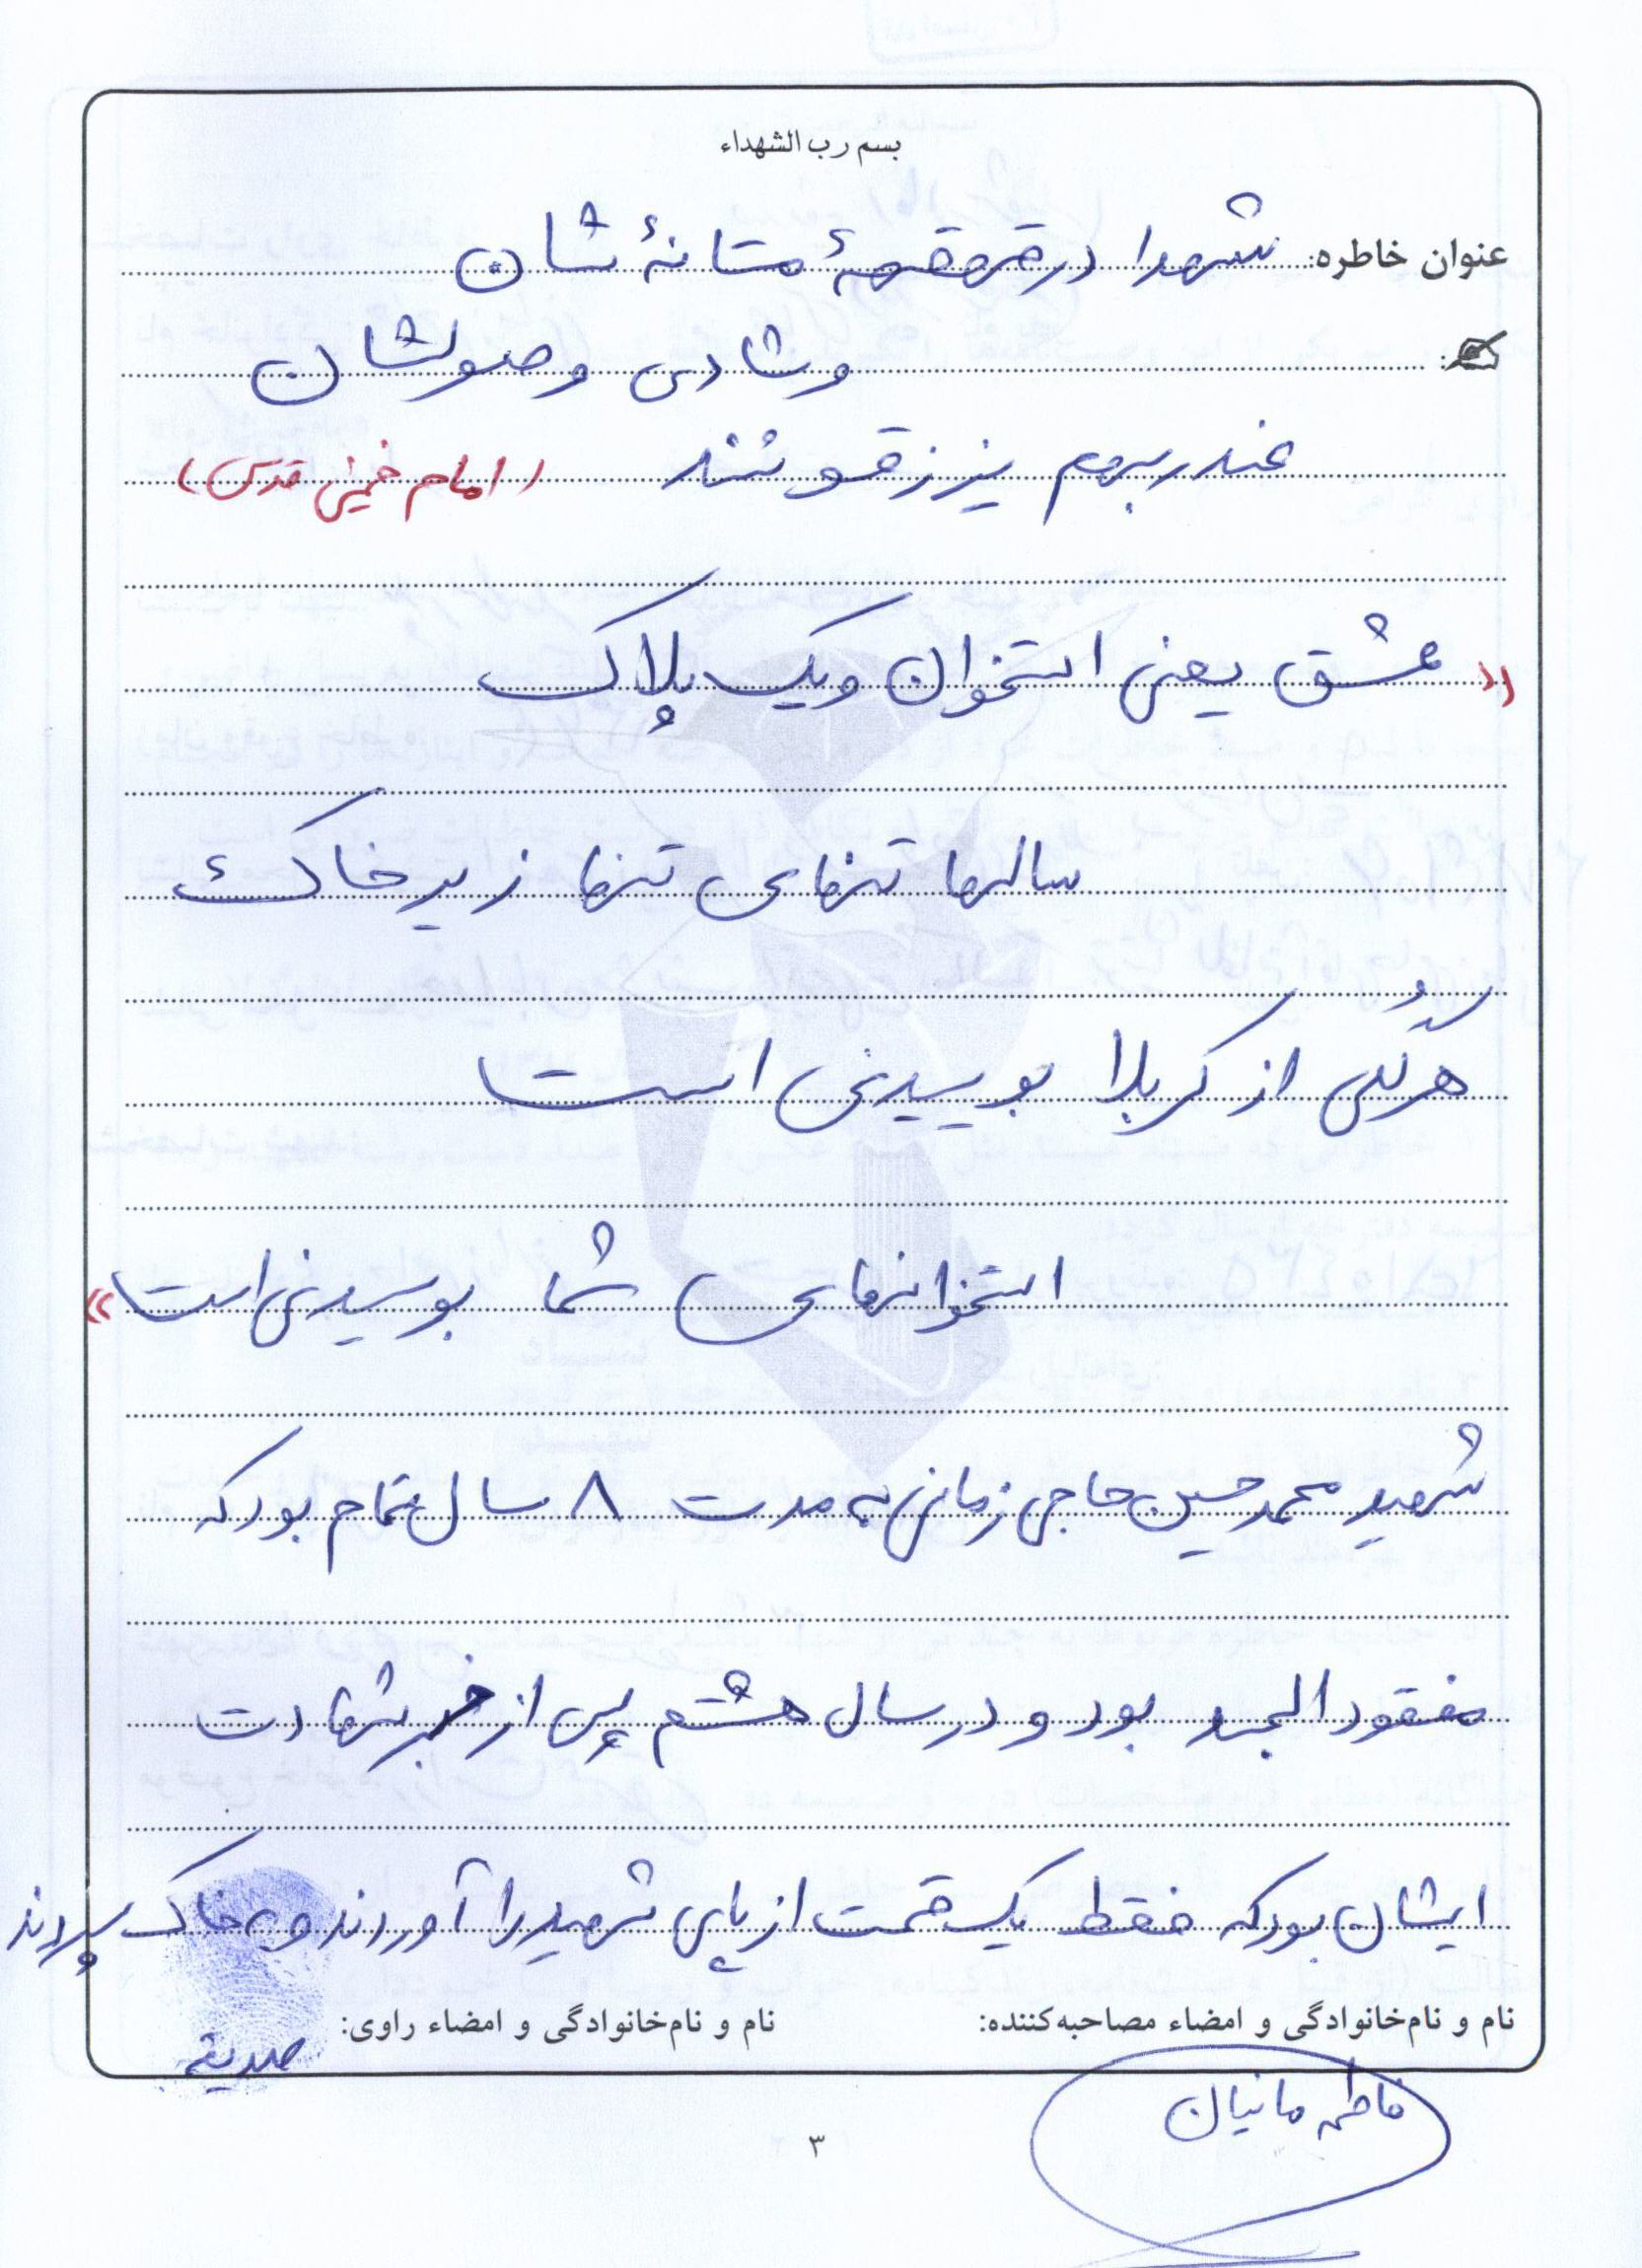 بسم رب الشهداء
عنوان خاطره: شهدا در قهقههٔ مستانهٔ شان
وشادی وصولشان
عند ربهم یرزقونند (امام خمینی قدس)
«عشق یعنی استخوان ویک پلاک
سالها تنهای تنها زیر خاک
هر گلی از کربلا بوییدنی است
استخوانهای شما بوسیدنی است»
شهید محمد حسین حاجی زمانی به مدت ۸ سال تمام بود که
مفقود الجسد بود و در سال هشتم پس از خبر شهادت
ایشان بود که فقط یک قسمت از پای شهید را آوردند و به خاک سپردند
نام و نام‌خانوادگی و امضاء مصاحبه‌کننده: نام و نام‌خانوادگی و امضاء راوی:
صدیقه
فاطمه مانیان
۳